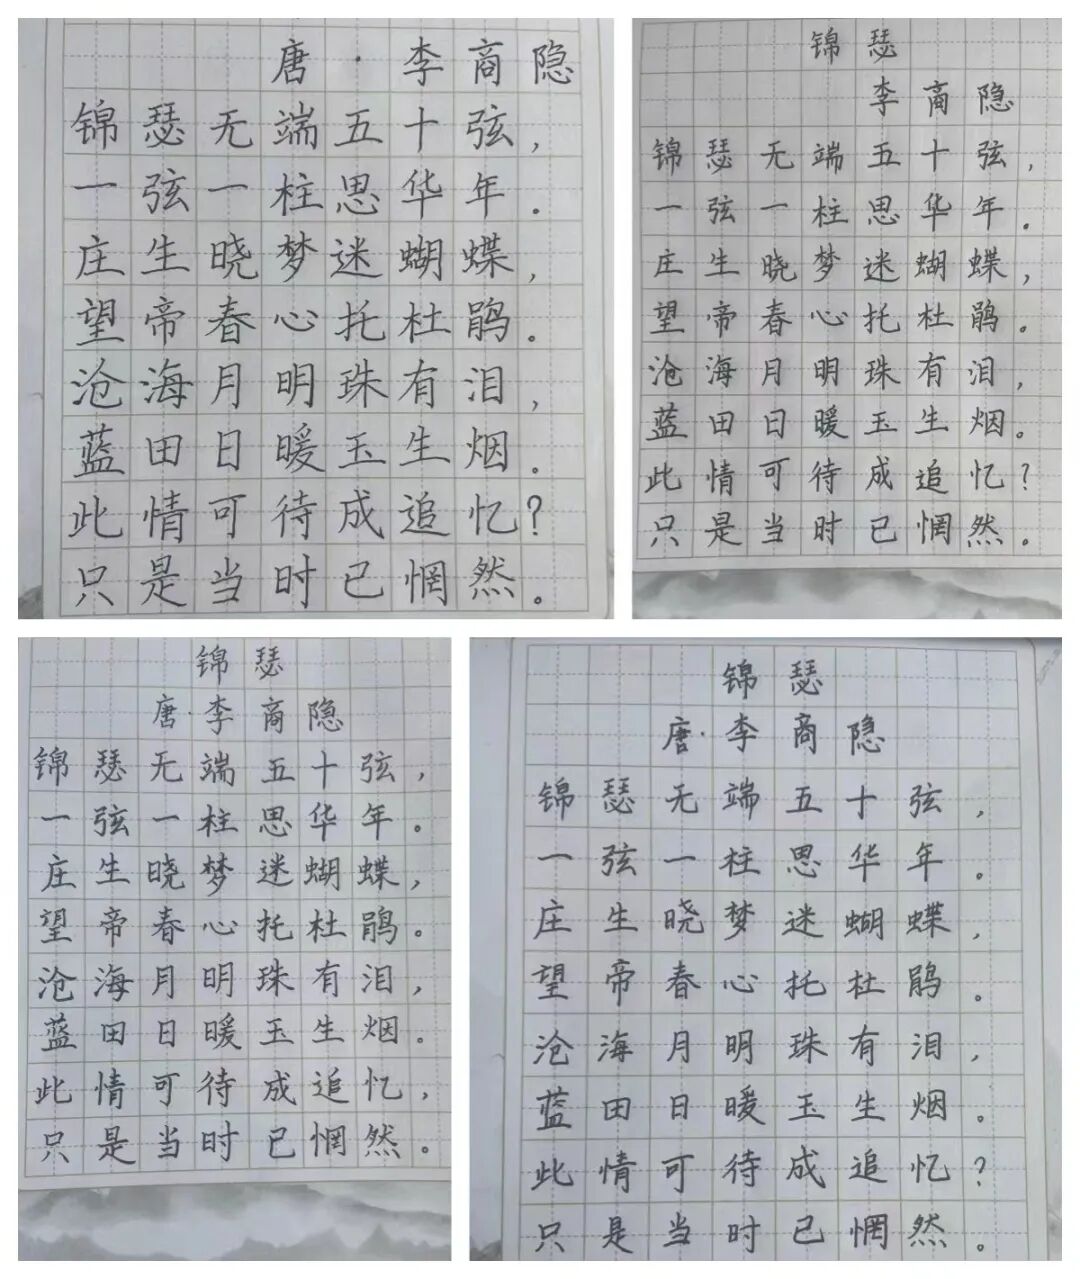 唐·李商隐
锦瑟无端五十弦，
一弦一柱思华年．
庄生晓梦迷蝴蝶，
望帝春心托杜鹃。
沧海月明珠有泪，
蓝田日暖玉生烟．
此情可待成追忆？
只是当时已惘然。
锦瑟
李商隐
锦瑟无端五十弦，
一弦一柱思华年。
庄生晓梦迷蝴蝶，
望帝春心托杜鹃。
沧海月明珠有泪，
蓝田日暖玉生烟。
此情可待成追忆？
只是当时已惘然。
锦瑟
唐·李商隐
锦瑟无端五十弦，
一弦一柱思华年。
庄生晓梦迷蝴蝶，
望帝春心托杜鹃。
沧海月明珠有泪，
蓝田日暖玉生烟．
此情可待成追忆，
只是当时已惘然。
锦瑟
唐·李商隐
锦瑟无端五十弦，
一弦一柱思华年。
庄生晓梦迷蝴蝶，
望帝春心托杜鹃。
沧海月明珠有泪，
蓝田日暖玉生烟。
此情可待成追忆？
只是当时已惘然。